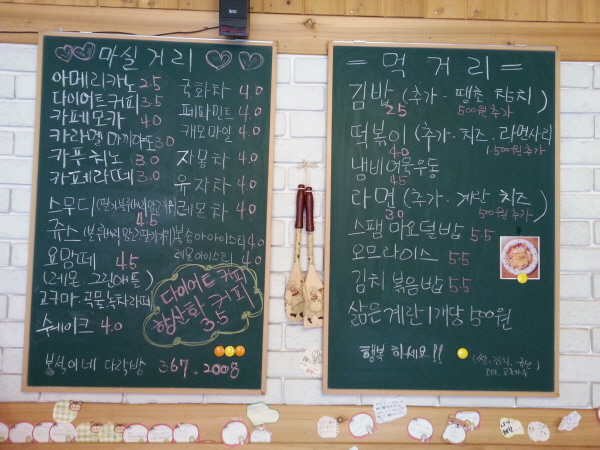 마실거리
아메리카노 2.5
다이어트커피 3.5
카페모카 4.0
카라멜마끼아또 3.0
카푸취노 3.0
카페라떼 3.0
스무디
4.5
쥬스
요맘떼 4.5
(레몬 그린애플)
고구마·곡물녹차라떼
쉐이크 4.0
국화차 4.0
페파민트 4.0
캐모마일 4.0
자몽차 4.0
유자차 4.0
레몬차 4.0
복숭아아이스티 4.0
레몬아이스티 4.0
다이어트 커피
3.5
다락방 367.2008
= 먹거리 =
김밥 (추가·땡초 참치)
2.5 500원추가
떡볶이 (추가·치즈·라면사리)
4.0 1.500원추가
냄비어묵우동
4.5
라면 (추가·계란 치즈)
3.0 500원추가
스팸마요덮밥 5.5
오므라이스 5.5
김치볶음밥 5.5
삶은계란 1개당 500원
행복 하세요!!